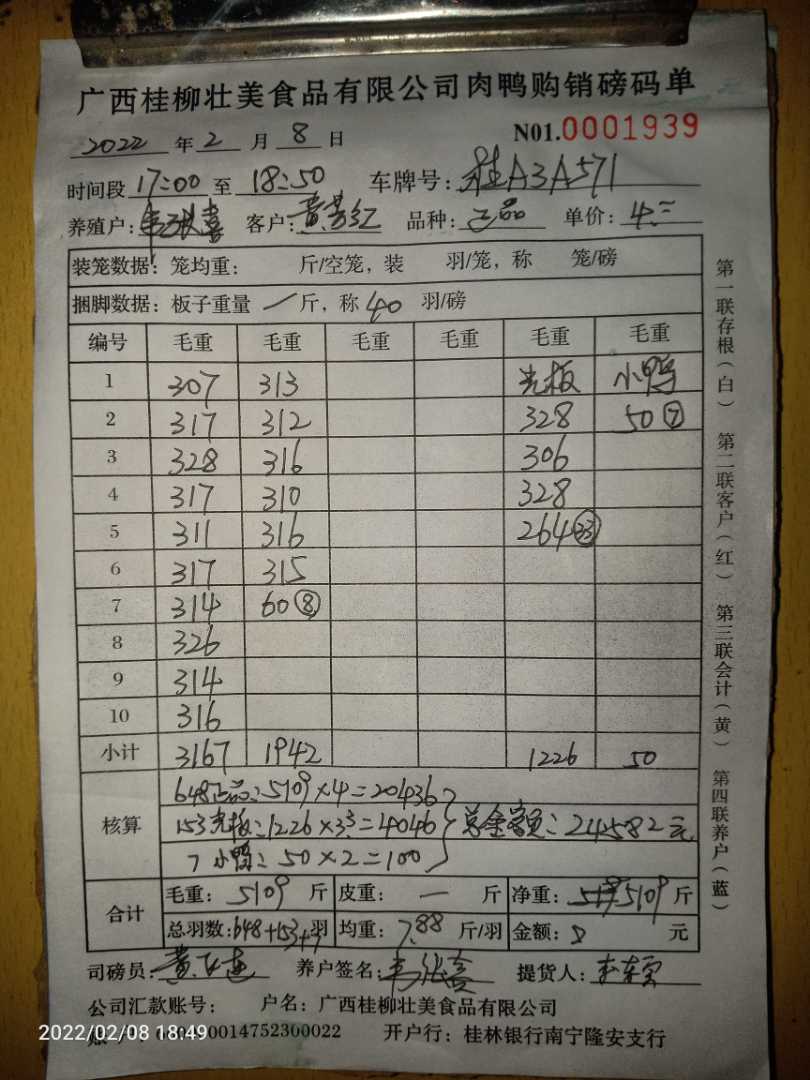 广西桂柳壮美食品有限公司肉鸭购销磅码单
2022 年 2 月 8 日 N01.0001939
时间段 17:00 至 18:50 车牌号: 桂A3A571
养殖户: 客户: 黄芳红 品种: 正品 单价:
装笼数据: 笼均重: 斤/空笼, 装 羽/笼, 称 笼/磅
捆脚数据: 板子重量 一 斤, 称 40 羽/磅
编号 毛重 毛重 毛重 毛重 毛重 毛重
1 307 313 光板 小鸭
2 317 312 328 50⑦
3 328 316 306
4 317 310 328
5 311 316 264㉝
6 317 315
7 314 60⑧
8 326
9 314
10 316
小计 3167 1942 1226 50
核算
648正品: 5109×4=20436
153光板: 1226×3.3=4046 总金额: 24582元
7小鸭: 50×2=100
合计 毛重: 5109 斤 皮重: 一 斤 净重: 5109 斤
总羽数: 648+153+7 羽 均重: 7.88 斤/羽 金额: 元
司磅员: 养户签名: 提货人:
公司汇款账号: 户名: 广西桂柳壮美食品有限公司
开户行: 桂林银行南宁隆安支行
2022/02/08 18:49
第一联存根(白) 第二联客户(红) 第三联会计(黄) 第四联养户(蓝)